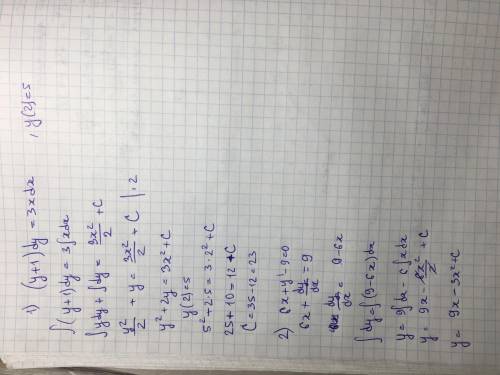 1) (y+1)dy = 3xdx , y(2)=5
∫(y+1)dy = 3∫xdx
∫ydy + ∫dy = 3x²/2 + C
y²/2 + y = 3x²/2 + C |·2
y² + 2y = 3x² + C
y(2)=5
5² + 2·5 = 3·2² + C
25 + 10 = 12 + C
C = 35-12 = 23
2) 6x + y' - 9 = 0
6x + dy/dx = 9
dy/dx = 9-6x
∫dy = ∫(9-6x)dx
y = 9∫dx - 6∫xdx
y = 9x - 6x²/2 + C
y = 9x - 3x² + C